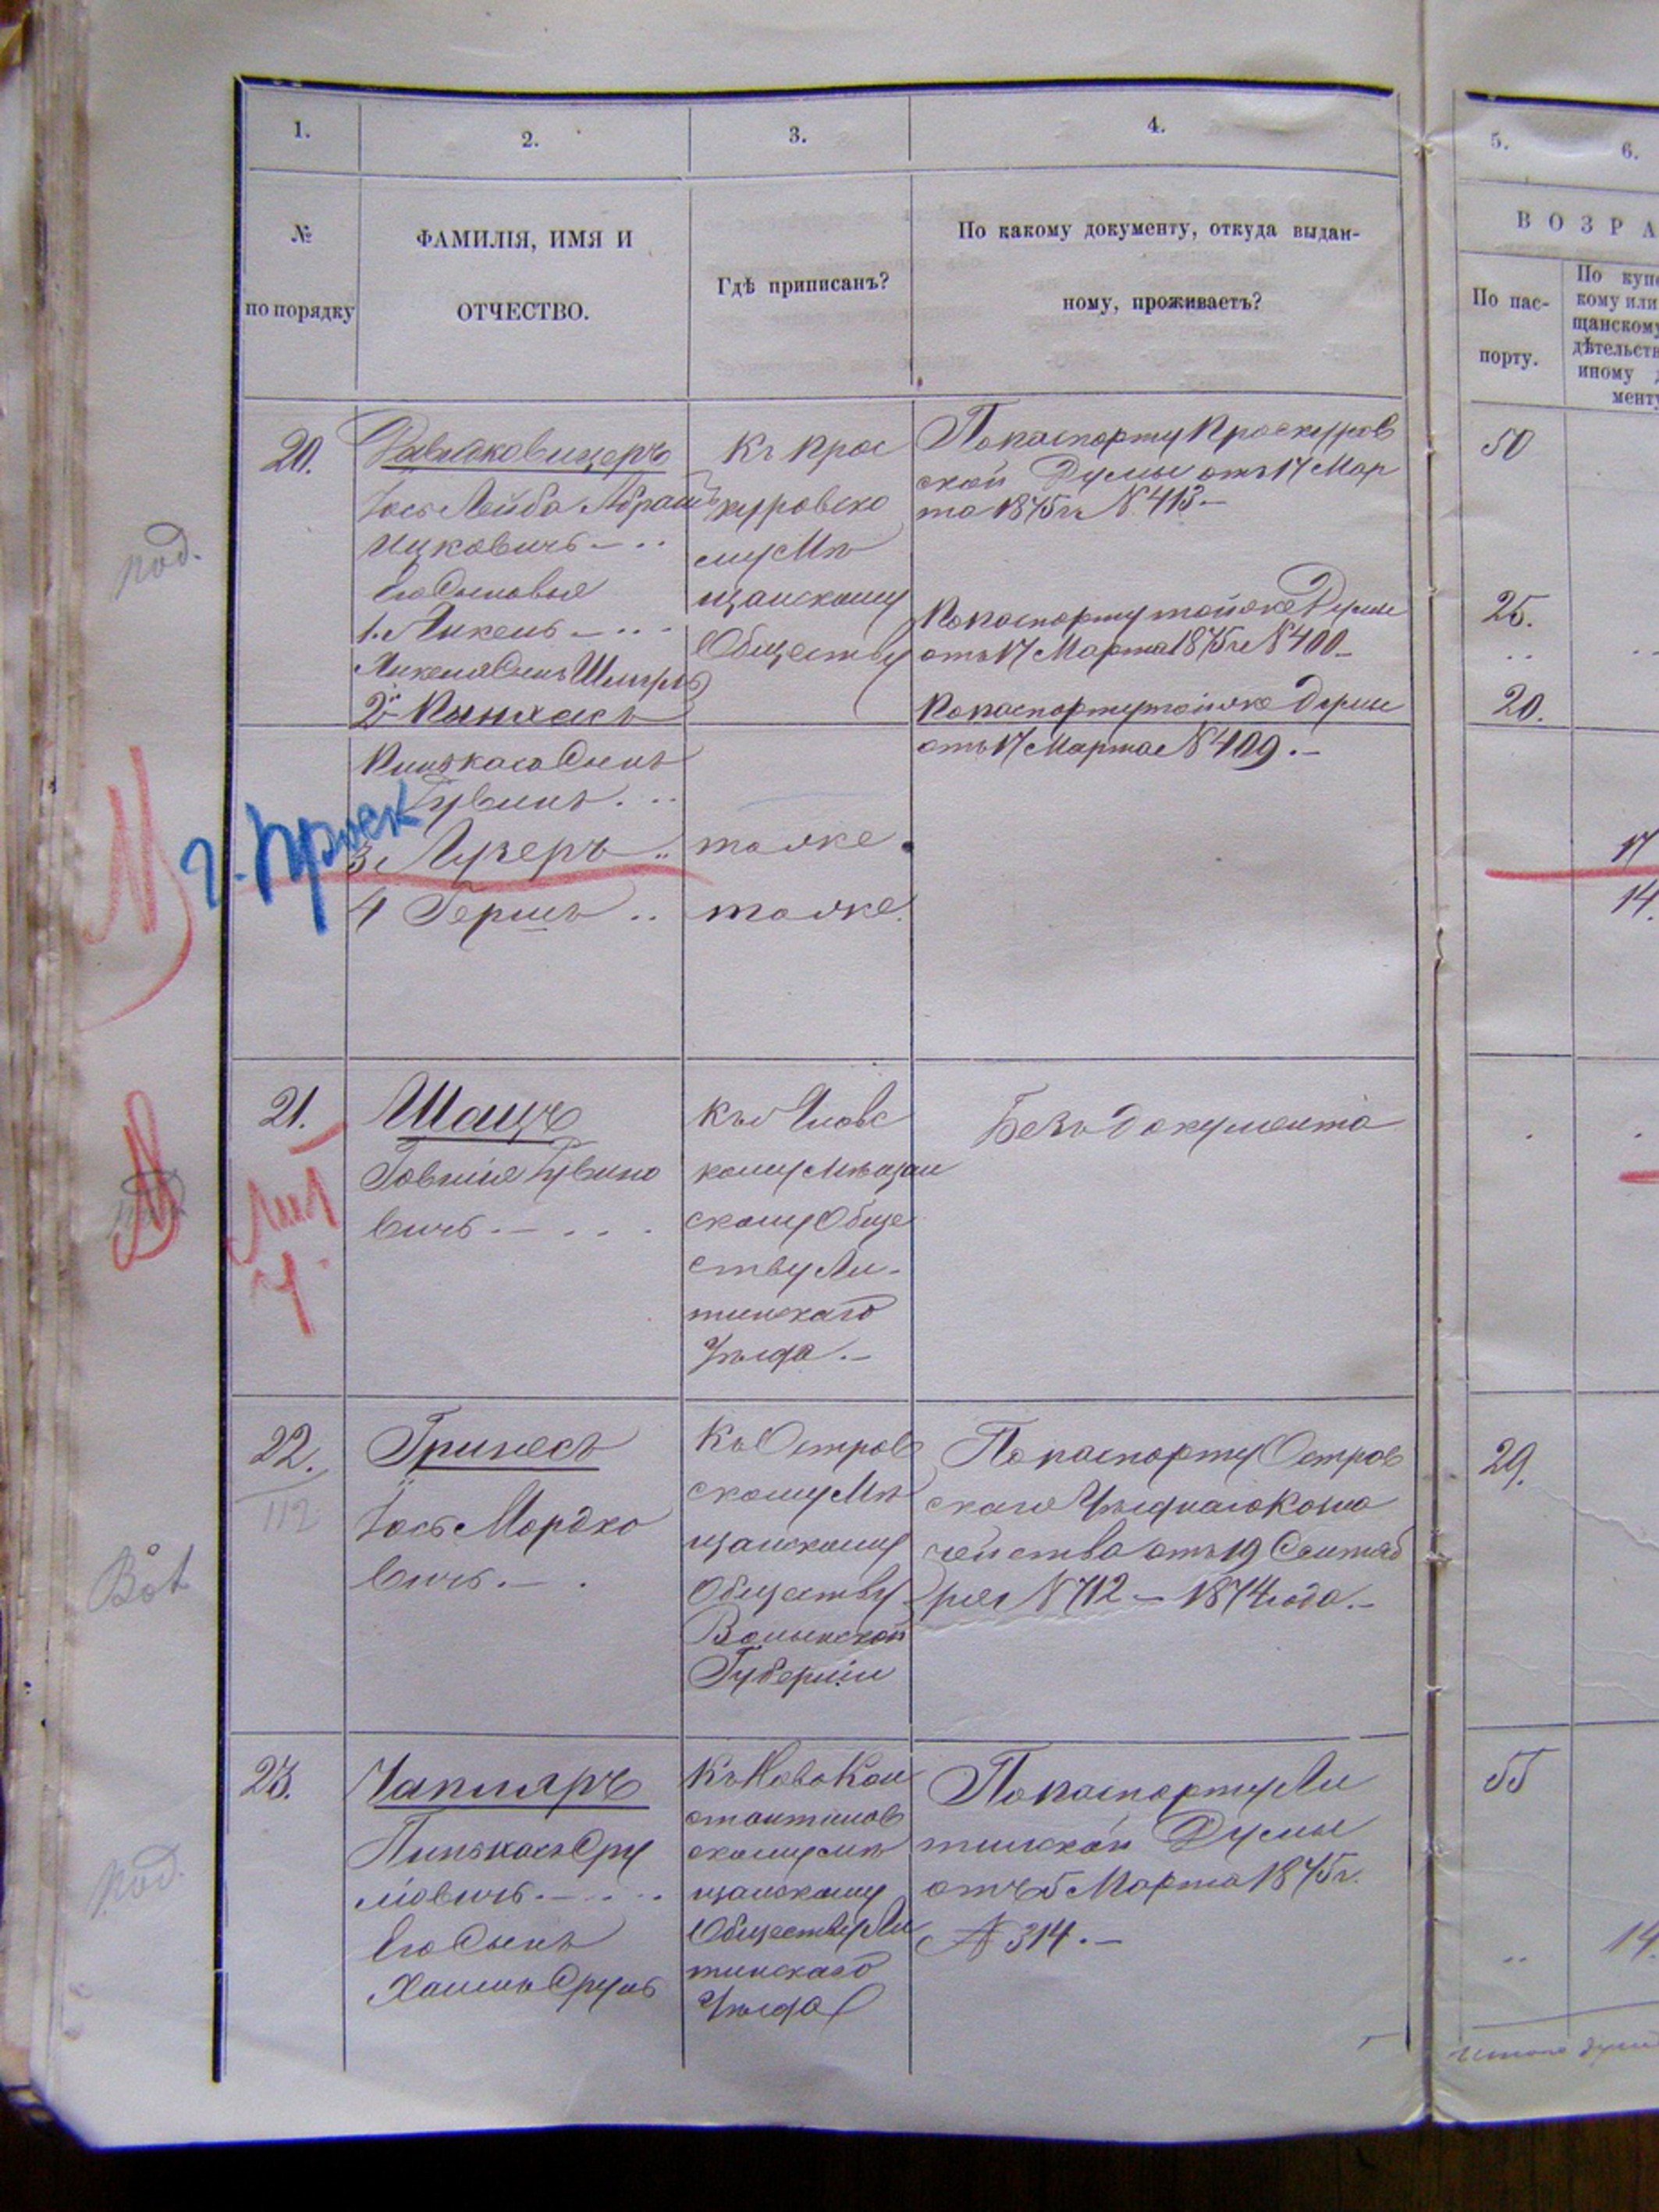 1.
2.
3.
4.
5.
6.
№
по порядку
ФАМИЛІЯ, ИМЯ И
ОТЧЕСТВО.
Гдѣ приписанъ?
По какому документу, откуда выдан-
ному, проживаетъ?
ВОЗРА
По пас-
порту.
По купе
кому или
щанскому
дѣтельств
иному д
менту
20.
Іось Лейба Абрамъ
Ицковичъ — ..
Его Сыновья
1. Янкель — ...
Янкеля Сынъ Шмуль
2. Пинхасъ
Пинькаса Сынъ
Рувинъ. ..
3. Лузеръ ..
4 Гершъ ..
Къ Прос
куровско
му Мѣ
щанскому
Обществу
тоже.
тоже.
По паспорту Проскуров
ской Думы отъ 17 Мар
та 1875 г. № 413. —
По паспорту тойже Думы
отъ 17 Марта 1875 г. № 400 —
По паспорту тойже Думы
отъ 17 Марта № 409. —
50
25.
20.
17
14.
под.
г. Проск
21.
Шацъ
Говшія Рувино
вичъ. — . . .
кому Мѣщан
скому Обще
ству Ли-
тинскаго
Уѣзда. —
Безъ документа
Лит
у.
22.
112
Гринесъ
Іось Мордко
вичъ. — .
Къ Остров
скому Мѣ
щанскому
Обществу
Волынской
Губерніи
По паспорту Остров
скаго Уѣзднаго Казна
чейства отъ 19 Сентяб
ря № 712 — 1874 года. —
29.
23.
Чапляръ
Пинькасъ Сру
льовичъ. — ...
Его Сынъ
Хаимъ Сруль
Къ Ново Кон
стантинов
скому мѣ
щанскому
Обществу Ли
тинскаго
Уѣзда
По паспорту Ли
тинской Думы
отъ 5 Марта 1875 г.
№ 314. —
55
14.
под.
Итого душ